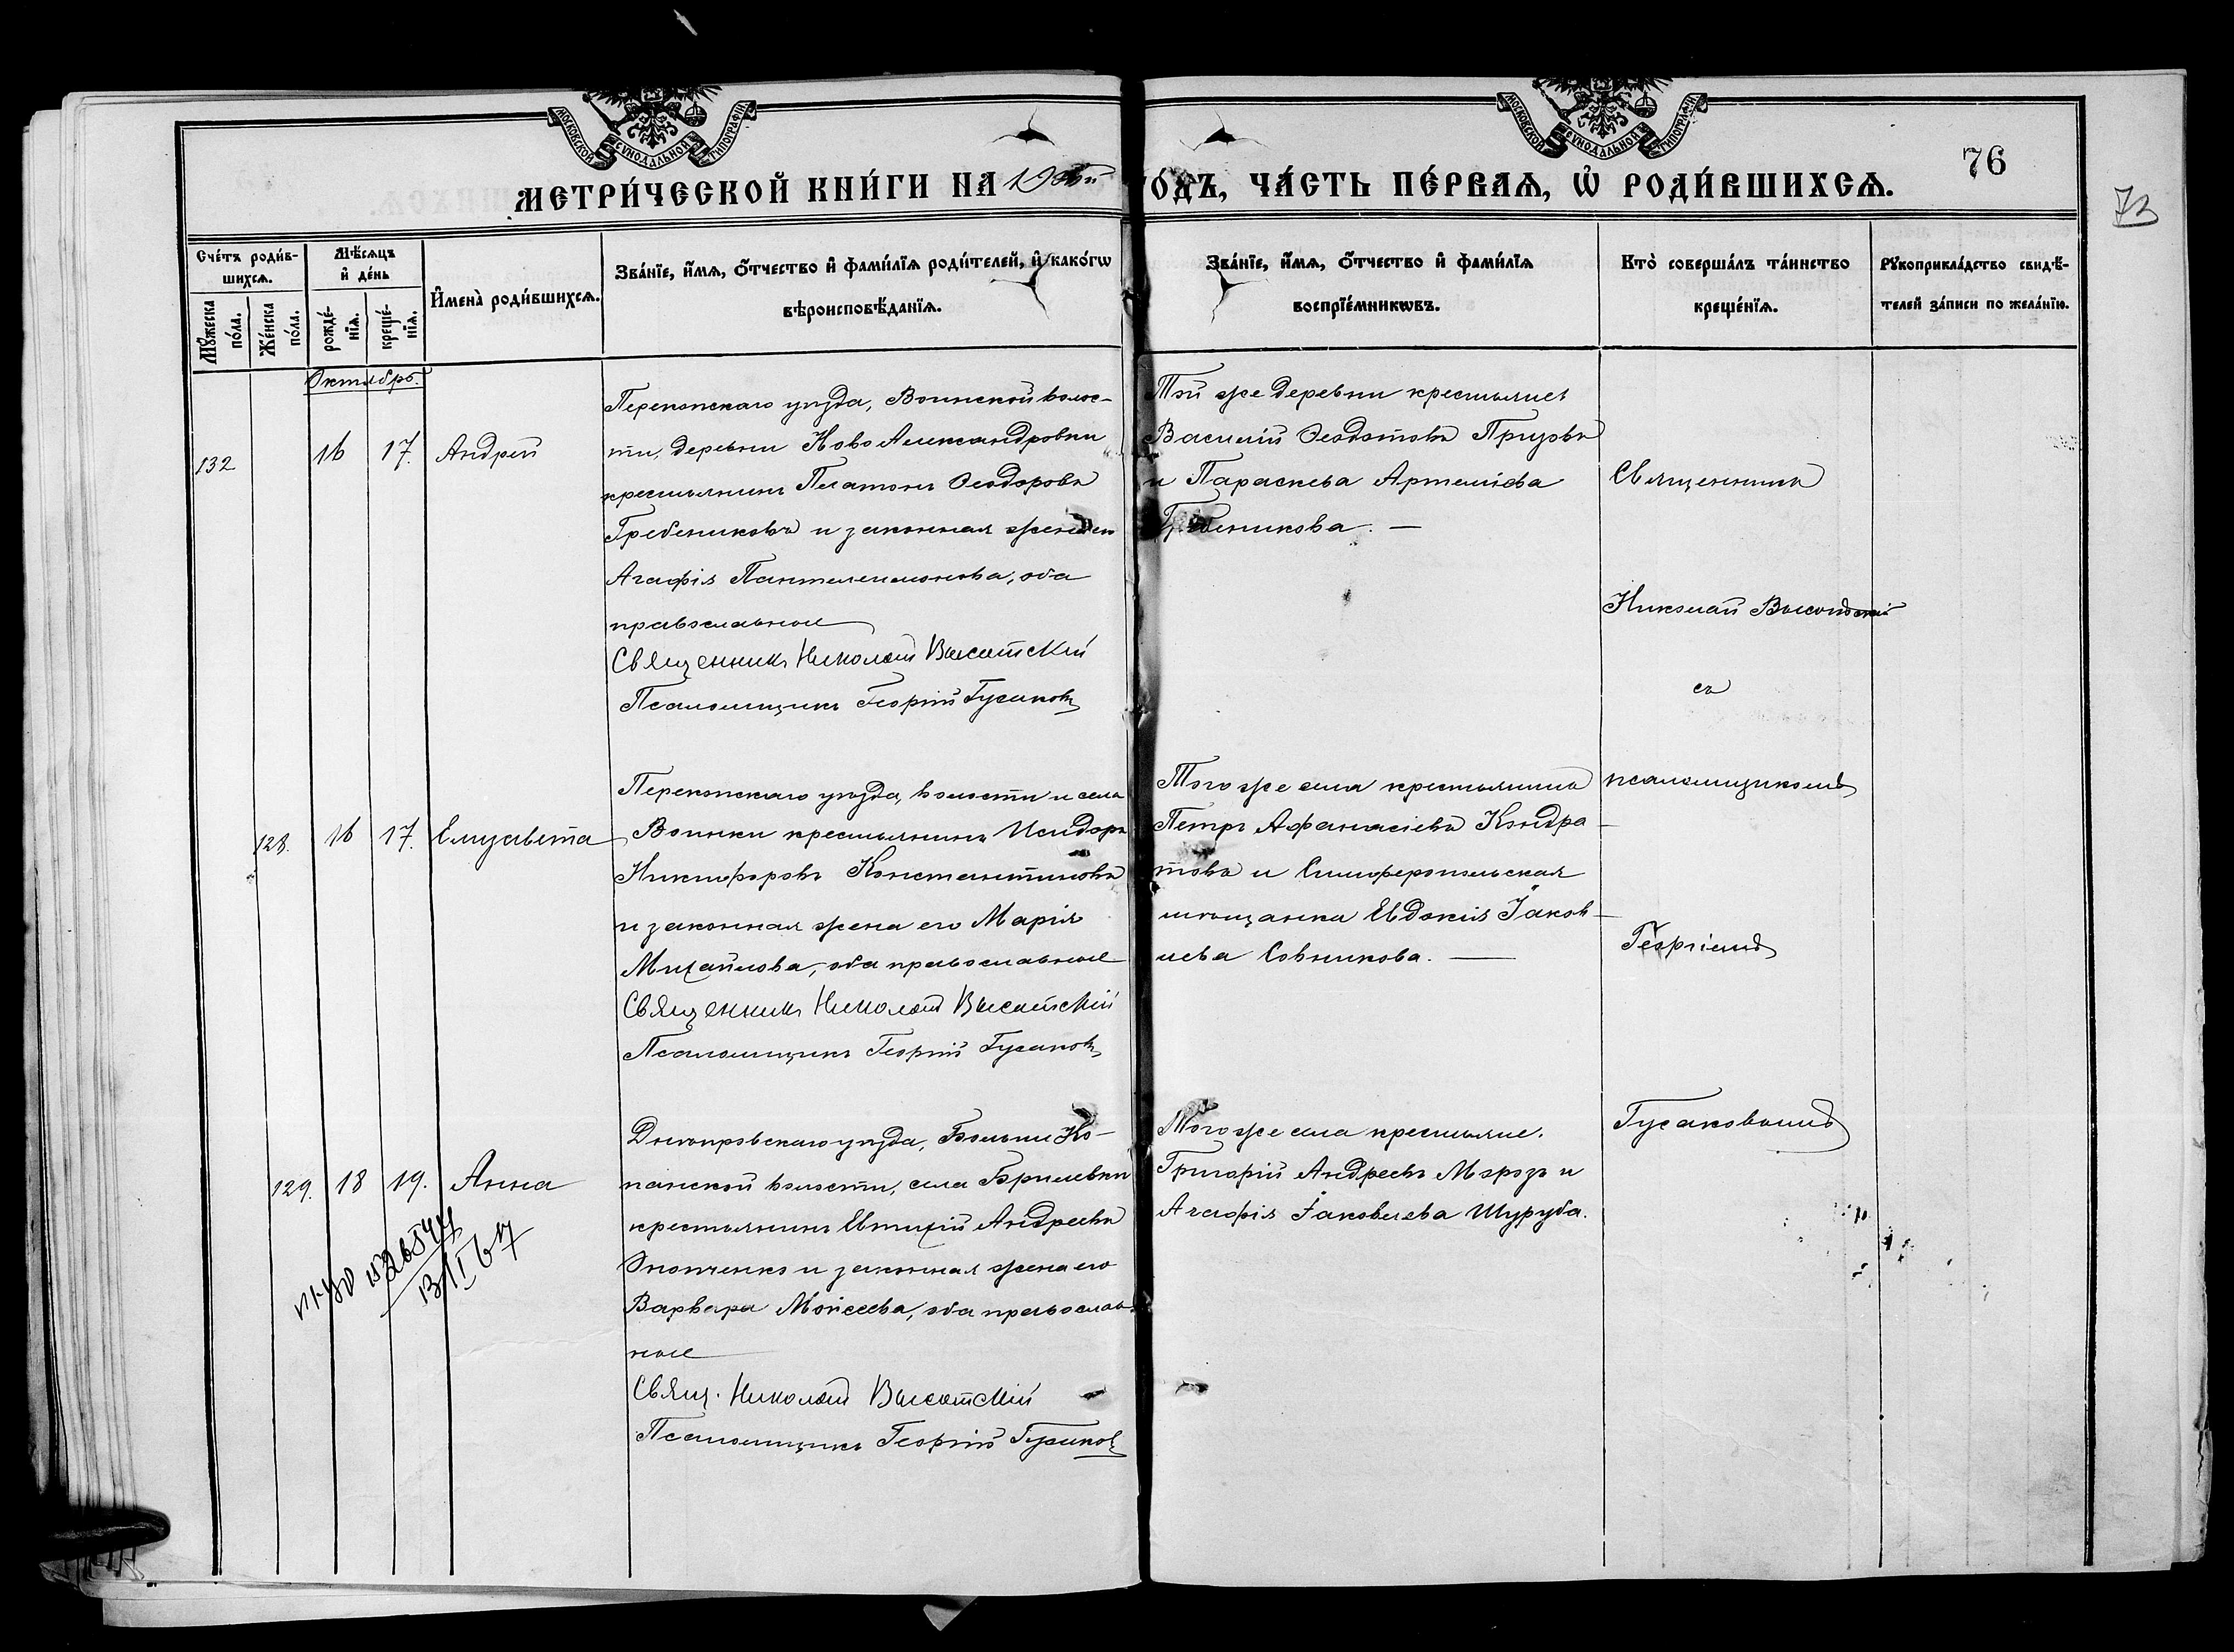 МОСКОВСКОЙ СѴНОДАЛЬНОЙ ТИПОГРАФІИ
МОСКОВСКОЙ СѴНОДАЛЬНОЙ ТИПОГРАФІИ
76
73
МЕТРИ́ЧЕСКОЙ КНИ́ГИ НА 19
О́ДЪ, ЧА́СТЬ ПЕ́РВАѦ, Ѡ҆ РОДИ́ВШИХСѦ.
Сче́тъ роди́в-
шихсѧ.
Мꙋ́жеска по́ла.
Же́нска по́ла.
Мѣ́сѧцъ
и҆ де́нь
рожде́-
нїѧ.
креще́-
нїѧ.
И҆мена̀ роди́вшихсѧ.
Зва́нїе, и҆́мѧ, ѻ҆́тчество и҆ фами́лїѧ роди́телей, и҆ како́гѡ
вѣроисповѣ́данїѧ.
Зва́нїе, и҆́мѧ, ѻ҆́тчество и҆ фами́лїѧ
воспрїе́мникѡвъ.
Кто̀ соверша́лъ та́инство
креще́нїѧ.
Рꙋкоприкла́дство свидѣ́-
телей за́писи по жела́нїю.
Октябрь.
132
16
17.
Андрей
Перекопскаго уѣзда, Воинской волос-
ти, деревни Ново Александровки
крестьянинъ Платонъ Ѳеодоровъ
Гребениковъ и законная жена его
Агафія Пантелеимонова, оба
православные
Священникъ Николай Высотскій
Псаломщикъ Георгій Гусаковъ
Той же деревни крестьяне
Василій Ѳеодотовъ
и Параскева Артеміева
Гребеникова. —
Священникъ
Николай Высотскій
съ
псаломщикомъ
Георгіемъ
Гусаковымъ
128.
16
17.
Елизавета
Перекопскаго уѣзда, волости и села
Воинки крестьянинъ Исидоръ
Никифоровъ Константиновъ
и законная жена его Марія
Михайлова, оба православные
Священникъ Николай Высотскій
Псаломщикъ Георгій Гусаковъ
Того же села крестьянинъ
Петръ Афанасіевъ Кондра-
товъ и Симферопольская
мѣщанка Евдокія Іаков-
лева Совникова. —
129.
18
19.
Анна
Днѣпровскаго уѣзда, Больше Ко-
панской волости, села Брилевки
крестьянинъ Евтихій Андреевъ
и законная жена его
Варвара Моисеева, оба православ-
ные
Свящ. Николай Высотскій
Псаломщикъ Георгій Гусаковъ
Того же села крестьяне.
Григорій Андреевъ Морозъ и
Агафія Іаковлева Шуруба.